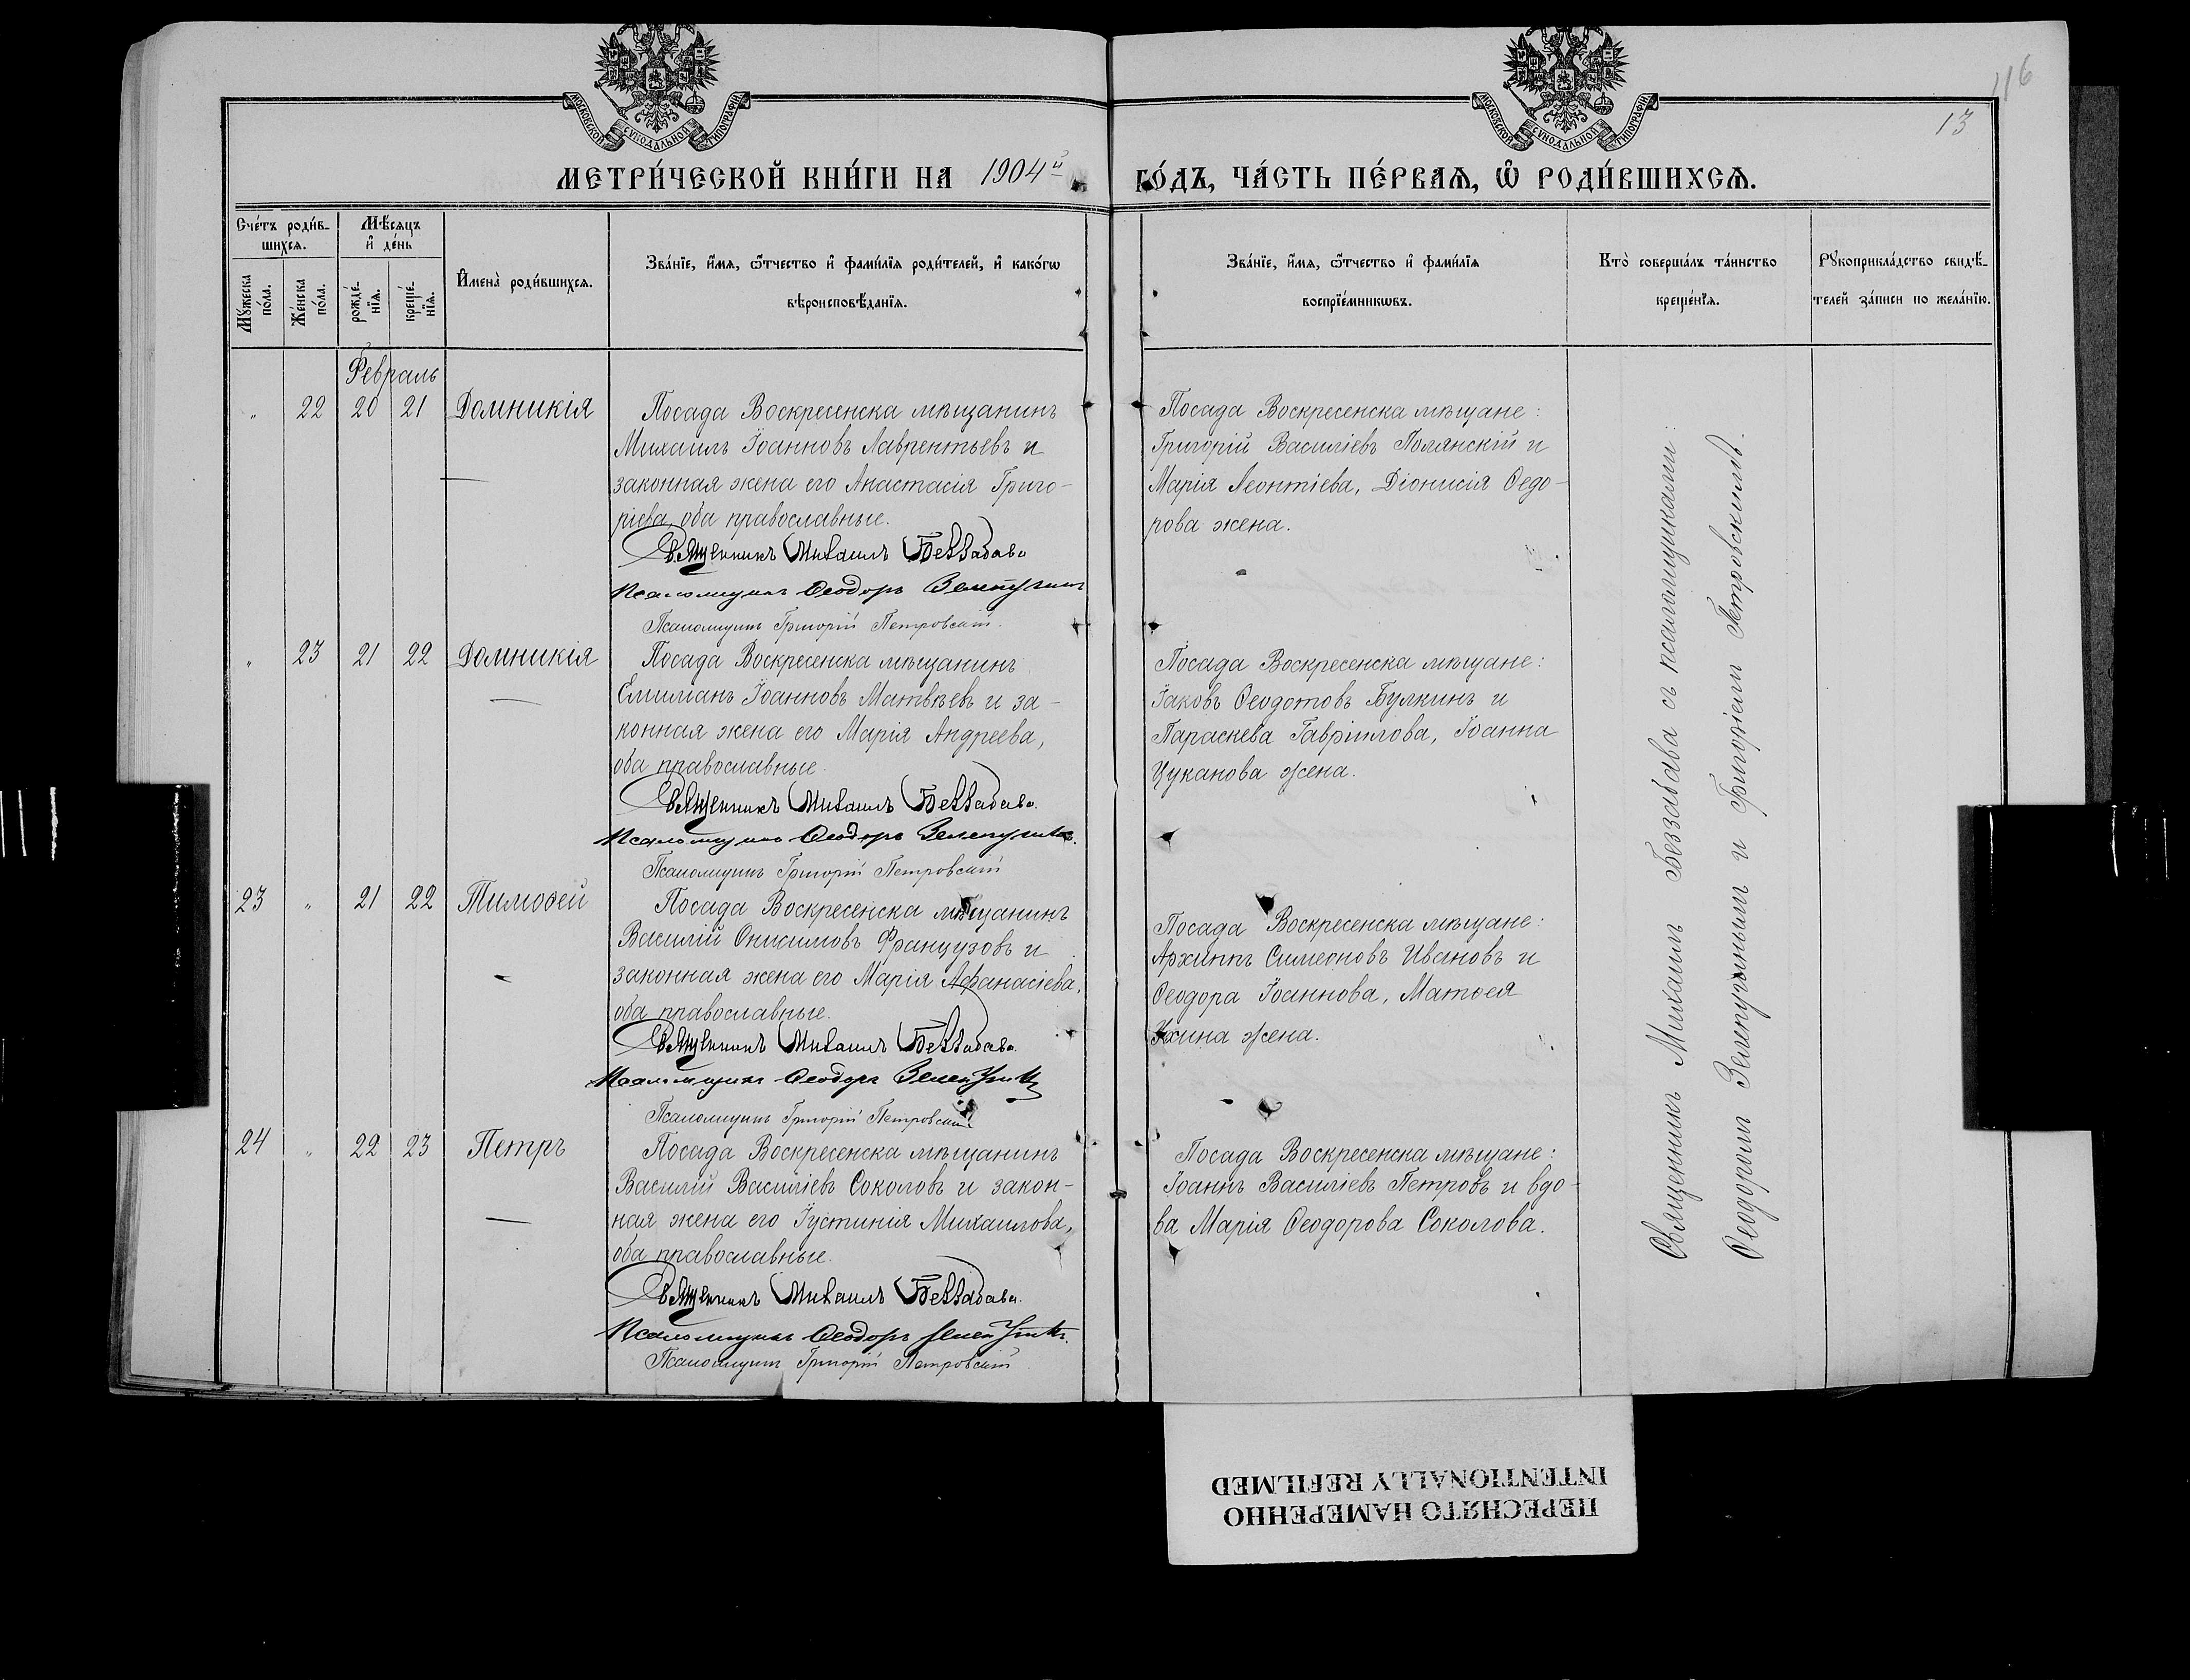 116
13
МОСКОВСКОЙ СѴНОДАЛЬНОЙ ТИПОГРАФІИ
МОСКОВСКОЙ СѴНОДАЛЬНОЙ ТИПОГРАФІИ
МЕТРИ́ЧЕСКОЙ КНИ́ГИ НА 1904й ГО́ДЪ, ЧА́СТЬ ПЕ́РВАѦ, Ѡ РОДИ́ВШИХСѦ.
Сче́тъ роди́в-
шихсѧ.
Мꙋжеска по́ла.
Же́нска по́ла.
Мѣ́сѧцъ
и҆ де́нь
рожде́-
нїѧ.
креще́-
нїѧ.
И҆мена̀ роди́вшихсѧ.
Зва́нїе, и҆́мѧ, ѻ҆́тчество и҆ фами́лїѧ роди́телей, и҆ како́гѡ
вѣроисповѣ́данїѧ.
Зва́нїе, и҆́мѧ, ѻ҆́тчество и҆ фами́лїѧ
воспрїе́мникѡвъ.
Кто̀ соверша́лъ та́инство
креще́нїѧ.
Рꙋкоприкла́дство свидѣ́-
телей за́писи по жела́нїю.
Февраль
" 22 20 21 Домникія
Посада Воскресенска мѣщанинъ
Михаилъ Іоанновъ Лаврентьевъ и
законная жена его Анастасія Григо-
ріева, оба православные.
Священникъ Михаилъ Беззабава
Псаломщикъ Ѳеодоръ Зелепугинъ
Псаломщикъ Григорій Петровскій.
Посада Воскресенска мѣщане:
Григорій Василіевъ Полянскій и
Марія Леонтіева, Діонисія Ѳедо-
рова жена.
" 23 21 22 Домникія
Посада Воскресенска мѣщанинъ
Емиліанъ Іоанновъ Матвѣевъ и за-
конная жена его Марія Андреева,
оба православные.
Священникъ Михаилъ Беззабава.
Псаломщикъ Ѳеодоръ Зелепугинъ.
Псаломщикъ Григорій Петровскій
Посада Воскресенска мѣщане:
Іаковъ Ѳеодотовъ Булкинъ и
Параскева Гавріилова, Іоанна
Цуканова жена.
23 " 21 22 Тимоѳей
Посада Воскресенска мѣщанинъ
Василій Онисимовъ Французовъ и
законная жена его Марія Аѳанасіева,
оба православные.
Священникъ Михаилъ Беззабава.
Псаломщикъ Ѳеодоръ Зелепугинъ
Псаломщикъ Григорій Петровскій
Посада Воскресенска мѣщане:
Архиппъ Симеоновъ Ивановъ и
Ѳеодора Іоаннова, Матѳея
жена.
24 " 22 23 Петръ
Посада Воскресенска мѣщанинъ
Василій Василіевъ Соколовъ и закон-
ная жена его Іустинія Михаилова,
оба православные.
Священникъ Михаилъ Беззабава.
Псаломщикъ Ѳеодоръ Зелепугинъ.
Псаломщикъ Григорій Петровскій
Посада Воскресенска мѣщане:
Іоаннъ Василіевъ Петровъ и вдо-
ва Марія Ѳеодорова Соколова.
Священникъ Михаилъ Беззабава съ псаломщиками:
Ѳеодоромъ Зелепугинымъ и Григоріемъ Петровскимъ.
ПЕРЕСНЯТО НАМЕРЕННО
INTENTIONALLY REFILMED